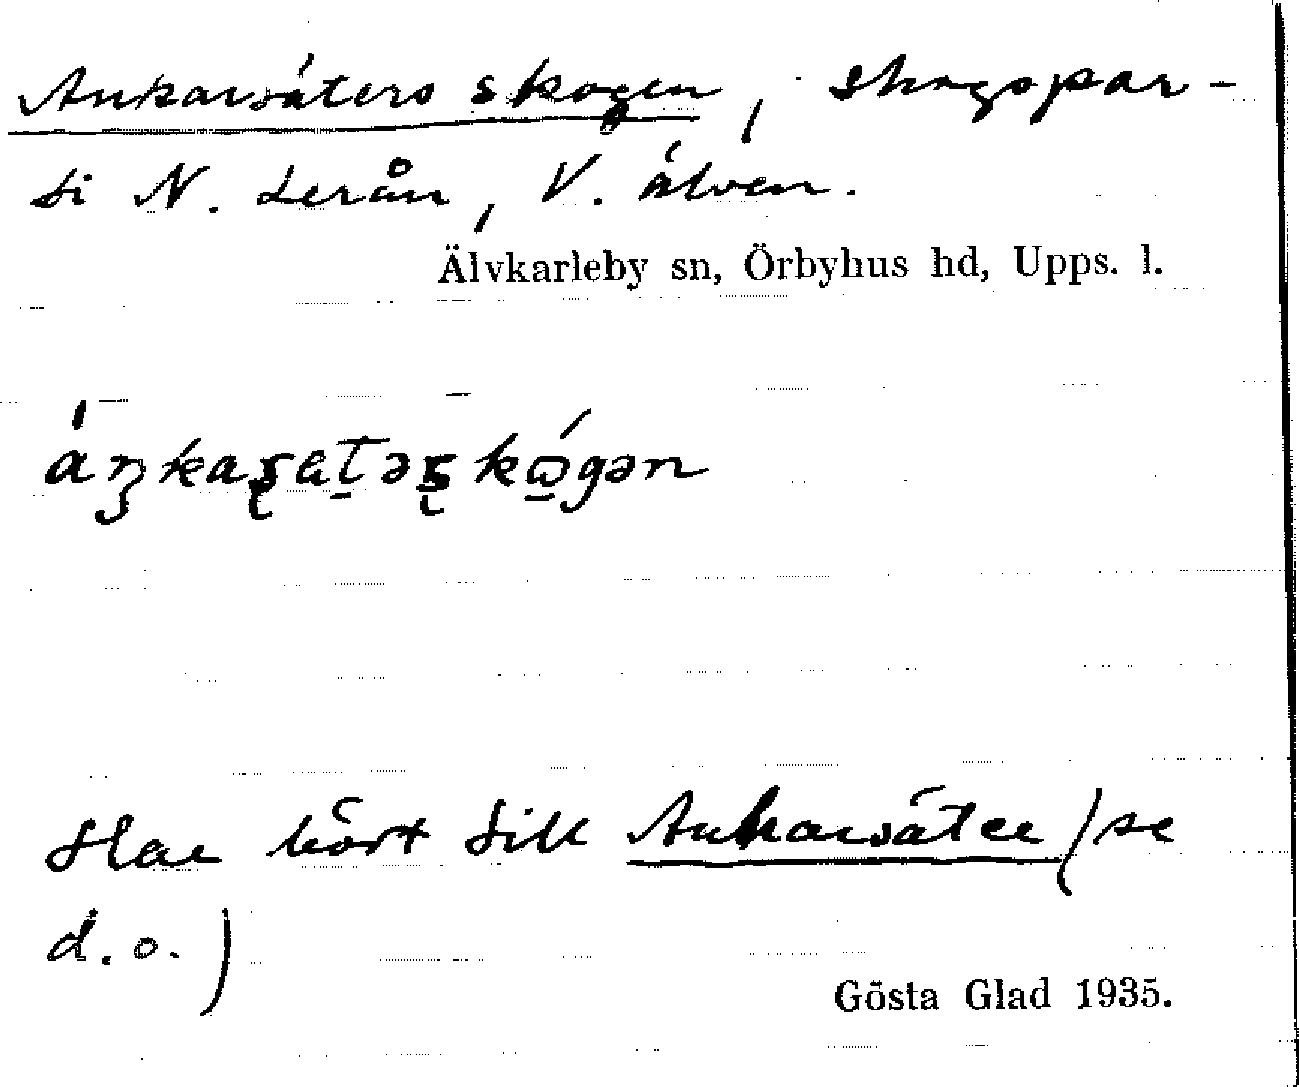 Ankarsäters skogen, skogspar-
ti N. Lerån, V. älven.
Älvkarleby sn, Örbyhus hd, Upps. l.
Har hört till Ankarsäter (se
d.o.)
Gösta Glad 1935.